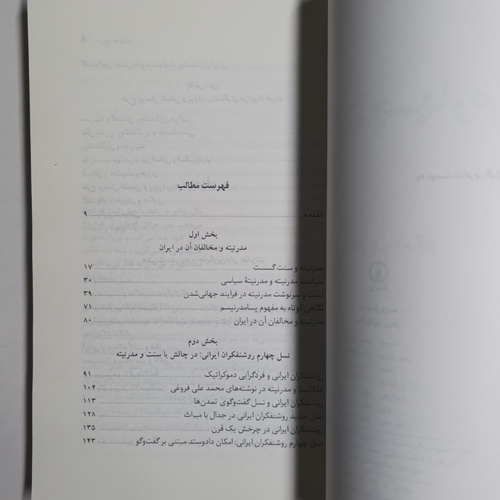 فهرست مطالب
مقدمه ۹
بخش اول
مدرنیته و مخالفان آن در ایران
مدرنیته و سنت گسست ۱۷
سیاست مدرنیته و مدرنیتهٔ سیاسی ۳۰
سنت و سرنوشت مدرنیته در فرایند جهانی‌شدن ۳۹
نگاهی کوتاه به مفهوم پسامدرنیسم ۷۱
مدرنیته و مخالفان آن در ایران ۸۰
بخش دوم
نسل چهارم روشنفکران ایرانی: در چالش با سنت و مدرنیته
روشنفکران ایرانی و فردگرایی دموکراتیک ۹۱
عقلانیت و مدرنیته در نوشته‌های محمد علی فروغی ۱۰۴
روشنفکران ایرانی و نسل گفت‌وگوی تمدن‌ها ۱۱۳
نسل جدید روشنفکران ایرانی در جدال با میراث ۱۲۸
روشنفکران ایرانی در چرخش یک قرن ۱۳۵
نسل چهارم روشنفکران ایرانی: امکان دادوستد مبتنی بر گفت‌وگو ۱۴۳